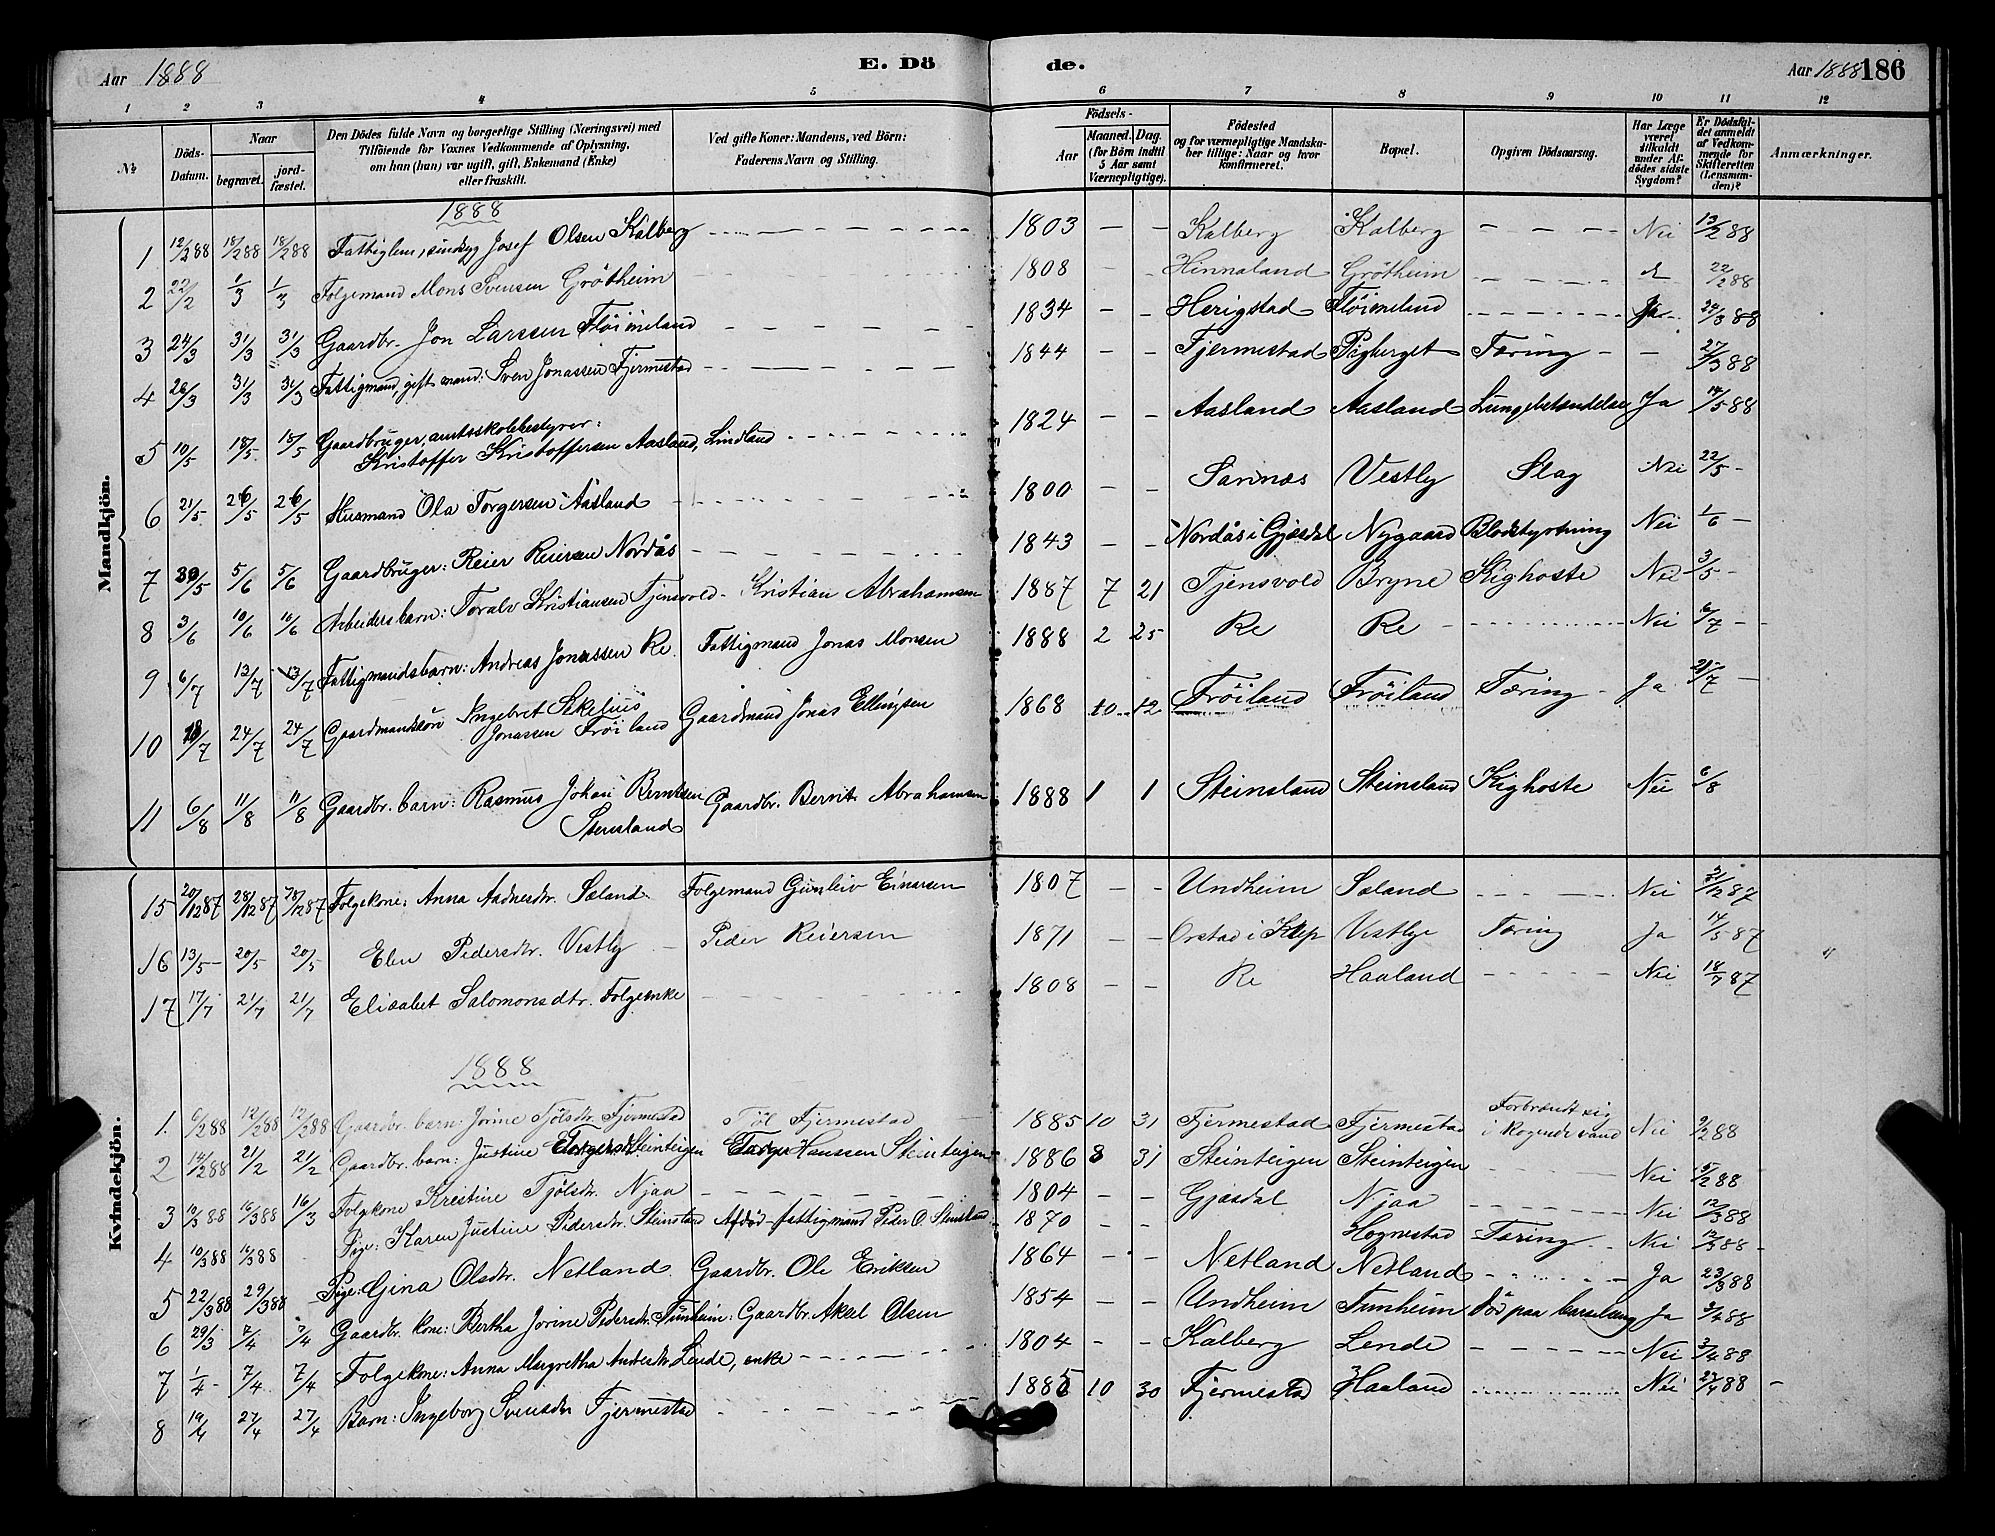 Aar 1888 E. Dö de. Aar 1888 186
1 2 3 4 5 6 7 8 9 10 11 12
№ Döds-Datum. Naar begravet. jord-fæstet. Den Dödes fulde Navn og borgerlige Stilling (Næringsvei) med Tilföiende for Voxnes Vedkommende af Oplysning, om han (hun) var ugift, gift, Enkemand (Enke) eller fraskilt. Ved gifte Koner: Mandens, ved Börn: Faderens Navn og Stilling. Födsels- Aar Maaned. Dag. (for Börn indtil 5 Aar samt Værnepligtige). Födested og for værnepligtige Mandska-ber tillige: Naar og hvor konfirmeret. Bopæl. Opgiven Dödsaarsag. Har Læge været tilkaldt under Af-dödes sidste Sygdom? Er Dödsfal-det anmeldt af Vedkom-mende for Skifteretten (Lensman-den)? Anmærkninger.
Mandkjön.
1888
1 12/2 88 18/2 88 18/2 88 Fattiglem, sindsyg Josef Olsen Kalberg 1803 — — Kalberg Kalberg Nei 13/2 88
2 22/2 1/3 1/3 Folgemand Mons Svensen Grötheim 1808 — — Hinnaland Grötheim 22/2 88
3 24/3 31/3 31/3 Gaardbr. Jon Larssen Flöimeland 1834 — — Herigstad Flöimeland Ja 24/3 88
4 26/3 31/3 31/3 Fattigmand, gift mand: Sven Jonassen Fjermestad 1844 — — Fjermestad Pigberget Tæring — — 27/3 88
5 10/5 18/5 18/5 Gaardbruger, amtsskolebestyrer:
Kristoffer Kristoffersen Aasland, Lindland 1824 — — Aasland Aasland Lungebetændelse Ja 14/5 88
6 21/5 26/5 26/5 Husmand Ola Torgersen Aasland 1800 — — Sannæs Vestly Slag Nei 22/5 —
7 30/5 5/6 5/6 Gaardbruger: Reier Reiersen Nordås 1843 — — Nordås i Gjæsdal Nygaard Blodstyrtning Nei 1/6 —
8 3/6 10/6 10/6 Arbeiders barn: Toralv Kristiansen Tjensvold Kristian Abrahamsen 1887 7 21 Tjensvold Bryne Kighoste Nei 3/5 —
9 6/7 13/7 13/7 Fattigmandsbarn: Andreas Jonassen Re. Fattigmand Jonas Monsen 1888 2 25 Re Re Nei 6/7 —
10 18/7 24/7 24/7 Gaardmandssön Ingebret Skelius
Jonassen Fröiland Gaardmand Jonas Ellingsen 1868 10 12 Fröiland Fröiland Tæring Ja 21/7 —
11 6/8 11/8 11/8 Gaardbr. barn: Rasmus Johan Berntsen
Stensland Gaardbr. Bernt Abrahamsen 1888 1 1 Steinsland Steinsland Kighoste Nei 6/8
Kvindekjön.
15 20/12 87 28/12 87 28/12 87 Folgekone: Anna Aadnesdtr. Sæland Folgemand Gunleiv Einarsen 1807 — — Undheim Sæland Nei 21/12 87
16 13/5 — 20/5 20/5 Elen Pedersdtr. Vestly — Peder Reiersen 1871 — — Orstad i Klep Vestlye Tæring Ja 14/5 87
17 17/7 21/7 21/7 Elisabet Salomonsdtr. Folgeenke 1808 — — Re Haaland Nei 18/7 87
1888
1. 6/2 88 12/2 88 12/2 88 Gaardbr. barn: Jorine Tjölsdtr. Fjermestad Tjöl Fjermestad 1885 10 31 Fjermestad Fjermestad Forbrændt sig
i kogende vand Nei 9/2 88
2 14/2 88 21/2 21/2 Gaardbr. barn: Justine Torgersdtr. Steinteigen Torger Hanssen Steinteigen 1886 8 31 Steinteigen Steinteigen Nei 15/2 88
3 10/3 88 16/3 88 16/3 Folgekone Kristine Tjölsdtr. Njaa 1804 — — Gjæsdal Njaa Nei 12/3 88
4 10/3 88 16/3 88 Pige: Karen Justine Pedersdtr. Steinsland Afdöd fattigmand Peder O. Stensland 1870 — — Hognestad Tæring Nei 12/3 88 —
5 22/3 88 29/3 88 Pige: Gina Olsdtr. Netland Gaardbr. Ole Eriksen 1864 — — Netland Netland Ja 23/3 88
6 29/3 7/4 7/4 Gaardbr. kone: Bertha Jorine Pedersdtr. Tunheim: Gaardbr. Aksel Olsen 1854 — — Undheim Tunheim Död paa barselseng Ja 3/4 88
7 1/4 — 7/4 7/4 Folgekone: Anna Margretha Andersdtr. Lende, enke 1804 — — Kalberg Lende Nei 3/4 88
8 19/4 27/4 27/4 Barn: Ingeborg Svensdtr Fjermestad 1885 10 30 Fjermestad Haaland Nei 27/4 88 —